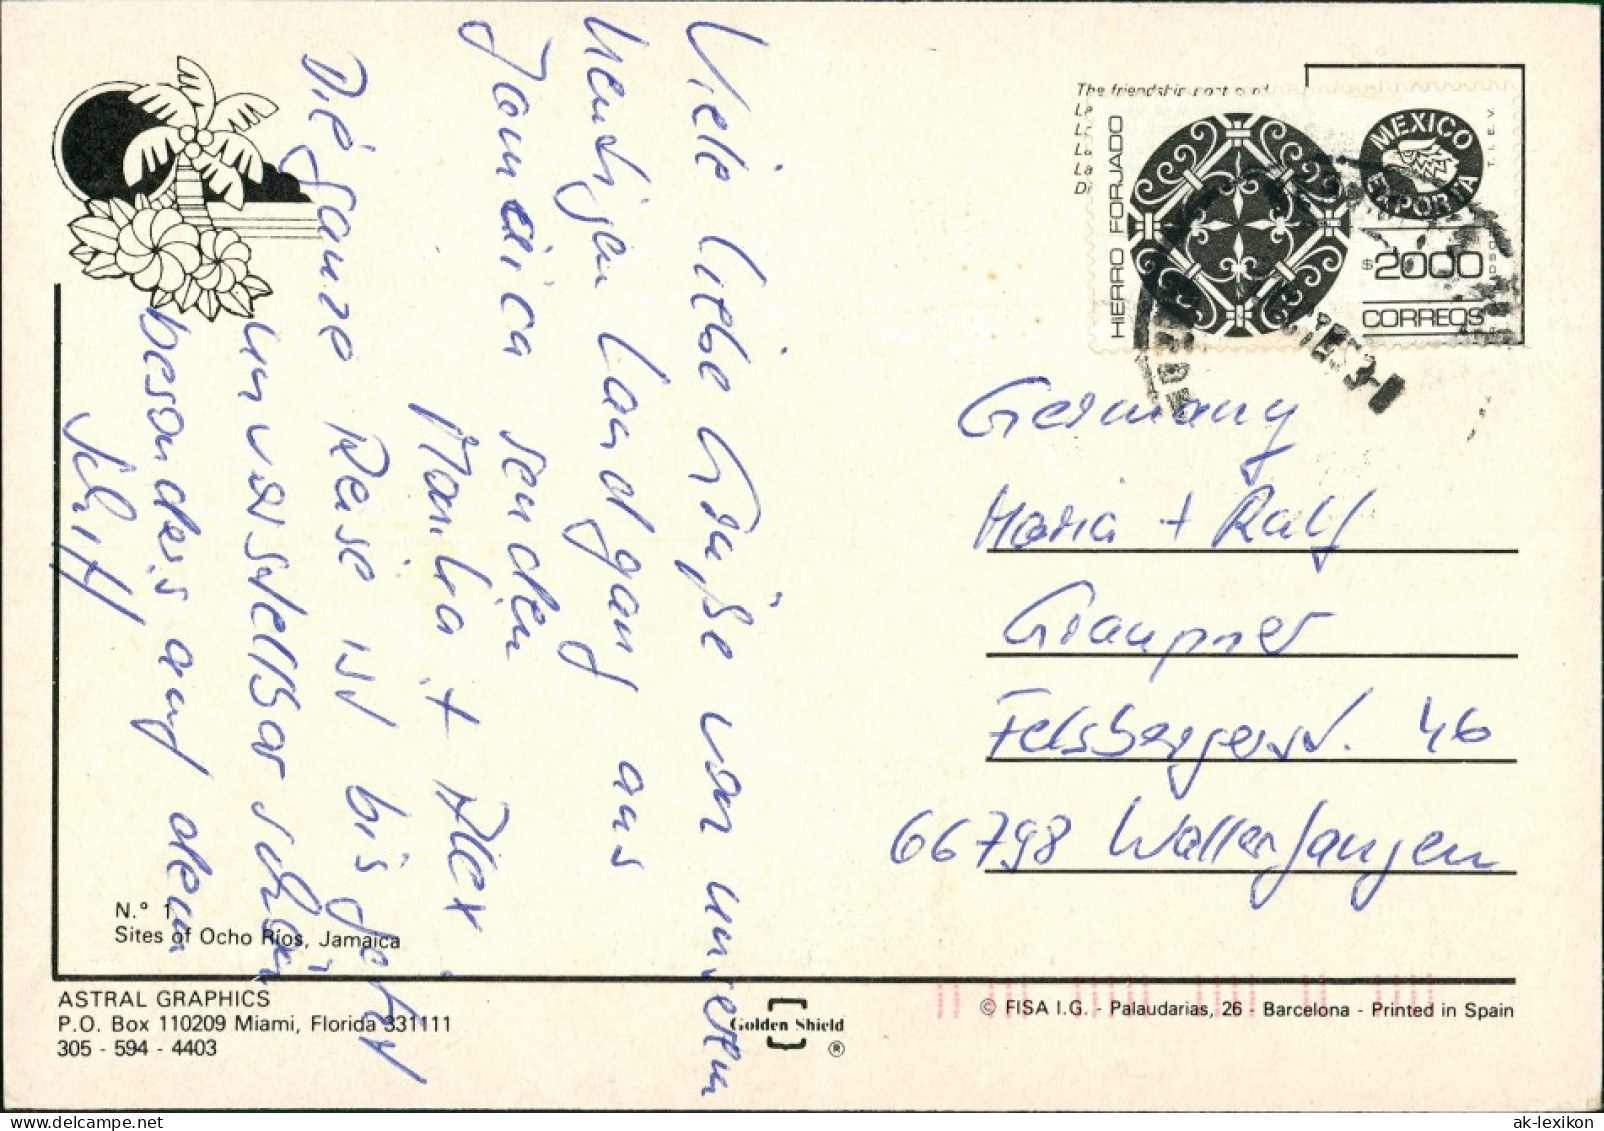 Viele liebe Grüße von unserem
heutigen Landgang aus
Jamaica senden
Marita + Alex
Die ganze Reise ist bis jetzt
unvorstellbar schön
besonders auf dem
Schiff
The friendship post card
La
La
La
Di
HIERRO FORJADO
MEXICO
EXPORTA
T.I.E.V.
$2000
CORREOS
Germany
Maria + Ralf
Graupner
Felsbergerstr. 46
66798 Wallerfangen
N.° 1
Sites of Ocho Ríos, Jamaica
ASTRAL GRAPHICS
P.O. Box 110209 Miami, Florida 331111
305 - 594 - 4403
Golden Shield
®
© FISA I.G. - Palaudarias, 26 - Barcelona - Printed in Spain
ak-lexikon